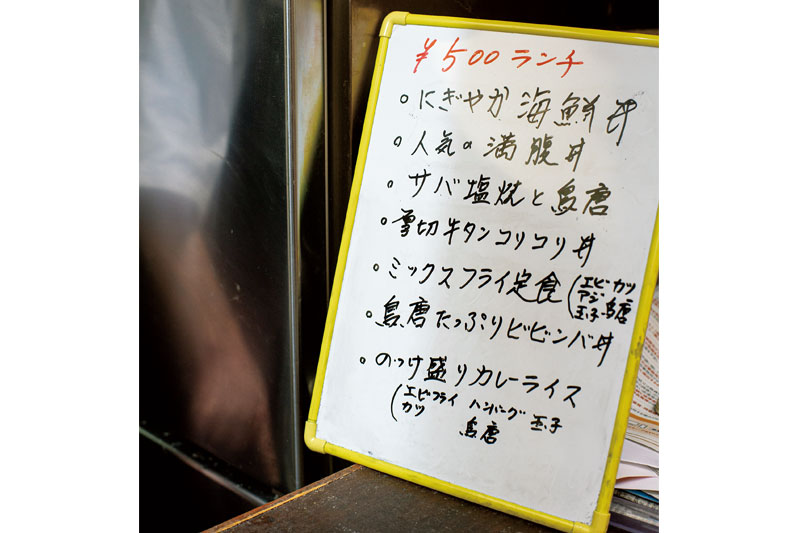 ¥500ランチ
。にぎやか海鮮丼
。人気の満腹丼
。サバ塩焼と鳥唐
。厚切牛タンコリコリ丼
。ミックスフライ定食(エビ・カツ
アジ 鳥唐
玉子
。鳥唐たっぷりビビンバ丼
。のっけ盛りカレーライス
(エビフライ ハンバーグ 玉子
カツ 鳥唐